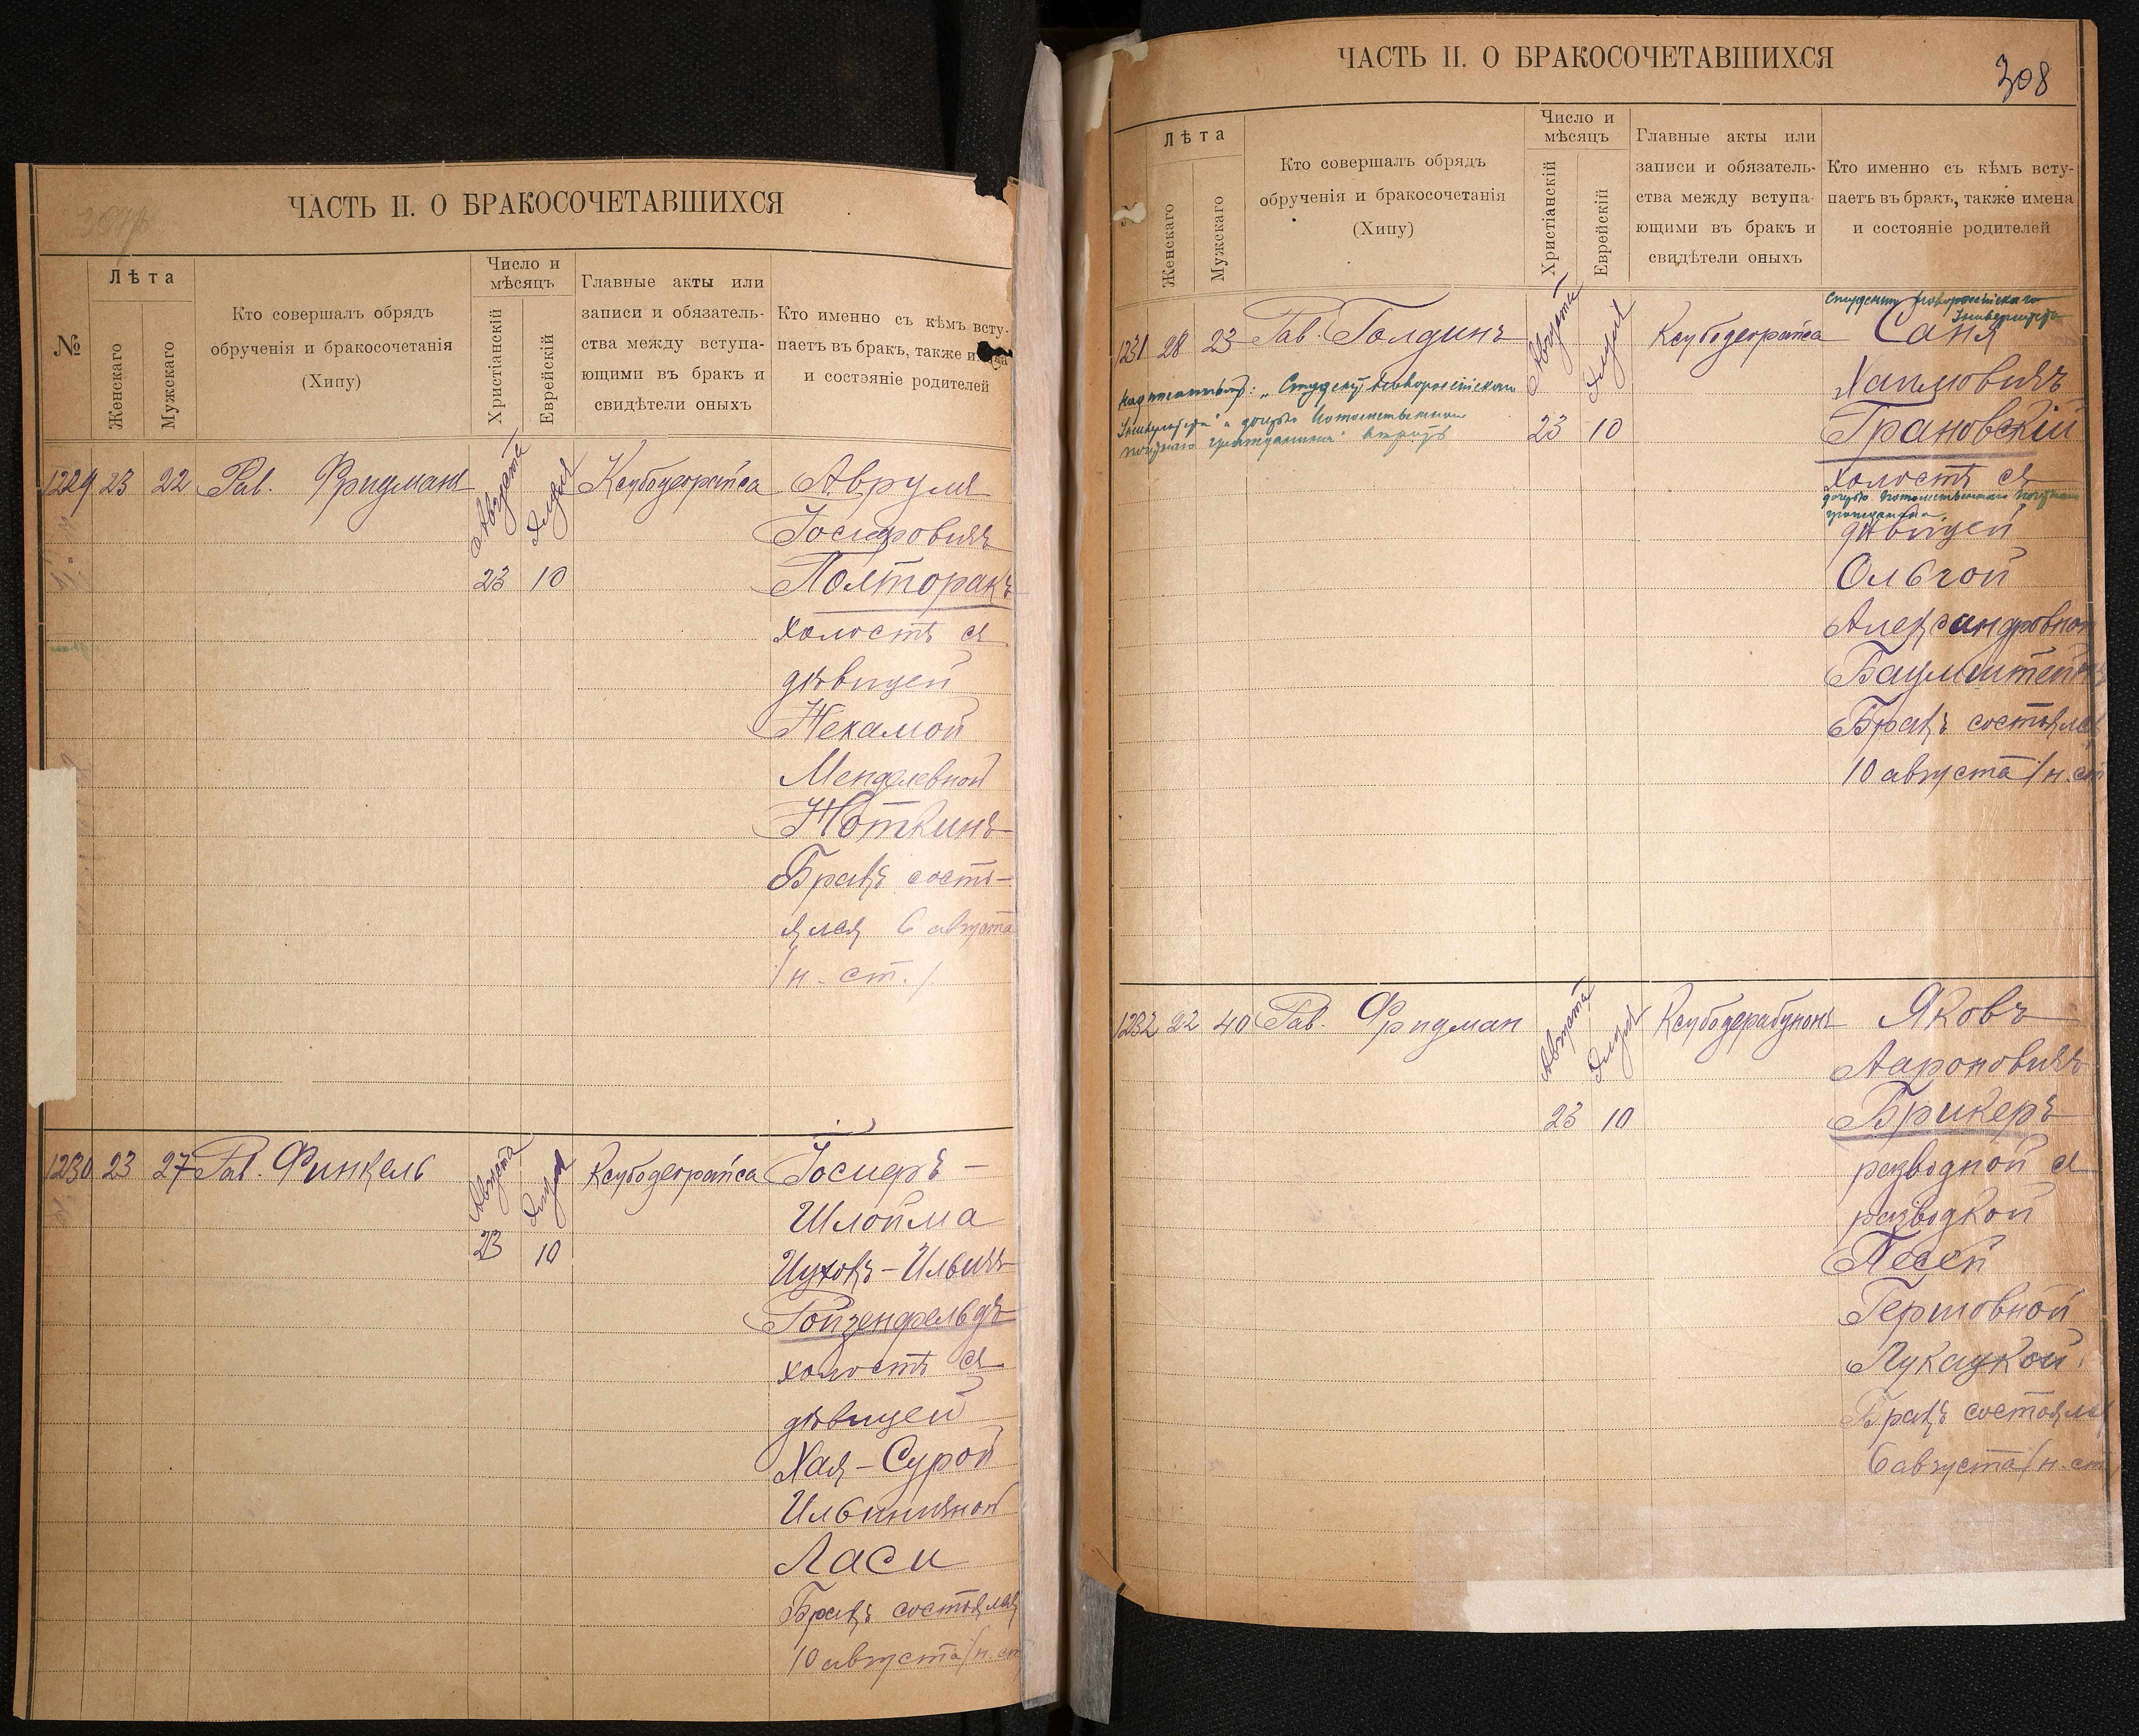 ЧАСТЬ II. О БРАКОСОЧЕТАВШИХСЯ
№
Лѣта
Женскаго
Мужскаго
Кто совершалъ обрядъ
обрученія и бракосочетанія
(Хипу)
Число и
мѣсяцъ
Христіанскій
Еврейскій
Главные акты или
записи и обязатель-
ства между вступа-
ющими въ бракъ и
свидѣтели оныхъ
Кто именно съ кѣмъ всту-
паетъ въ бракъ, также
и состояніе родителей
1229 23 22 Рав. Фридман Августа Элуля Ксубодеорайса Аврум
Іосифовичъ
23 10 Полторакъ
холостъ съ
дѣвицей
Нехамой
Менделевной
Ноткинъ
Бракъ состо-
ялся 6 августа
/н. ст./
1230 23 27 Рав. Финкель Августа Элуля Ксубодеорайса Іосифъ-
Шлойма
23 10 Ицковъ-Ильичъ
Ройзенфельдъ
холостъ съ
дѣвицей
Хая-Сурой
Ильиничной
Ласи
Бракъ состоялся
10 августа /н. ст
ЧАСТЬ II. О БРАКОСОЧЕТАВШИХСЯ
308
Лѣта
Женскаго
Мужскаго
Кто совершалъ обрядъ
обрученія и бракосочетанія
(Хипу)
Число и
мѣсяцъ
Христіанскій
Еврейскій
Главные акты или
записи и обязатель-
ства между вступа-
ющими въ бракъ и
свидѣтели оныхъ
Кто именно съ кѣмъ всту-
паетъ въ бракъ, также имена
и состояніе родителей
Студентъ Новороссійскаго
Университета
1231 28 23 Рав. Голдинъ Августа Элуля Ксубодеорайса Саня
Хаимовичъ
Надписанному: "Студентъ Новороссійскаго
Университета" и "дочерью Потомственнаго
почетнаго гражданина" вѣрить
23 10 Грановскій
холостъ съ
дочерью Потомственнаго Почетнаго
гражданина
дѣвицей
Ольгой
Александровной
Баумштейнъ
Бракъ состоялся
10 августа /н. ст
1232 22 40 Рав. Фридман Августа Элуля Ксубодерабунонъ Яковъ
Аароновичъ
23 10 Брикеръ
разводной съ
разводкой
Песей
Гершовной
Лукацкой
Бракъ состоялся
6 августа /н. ст